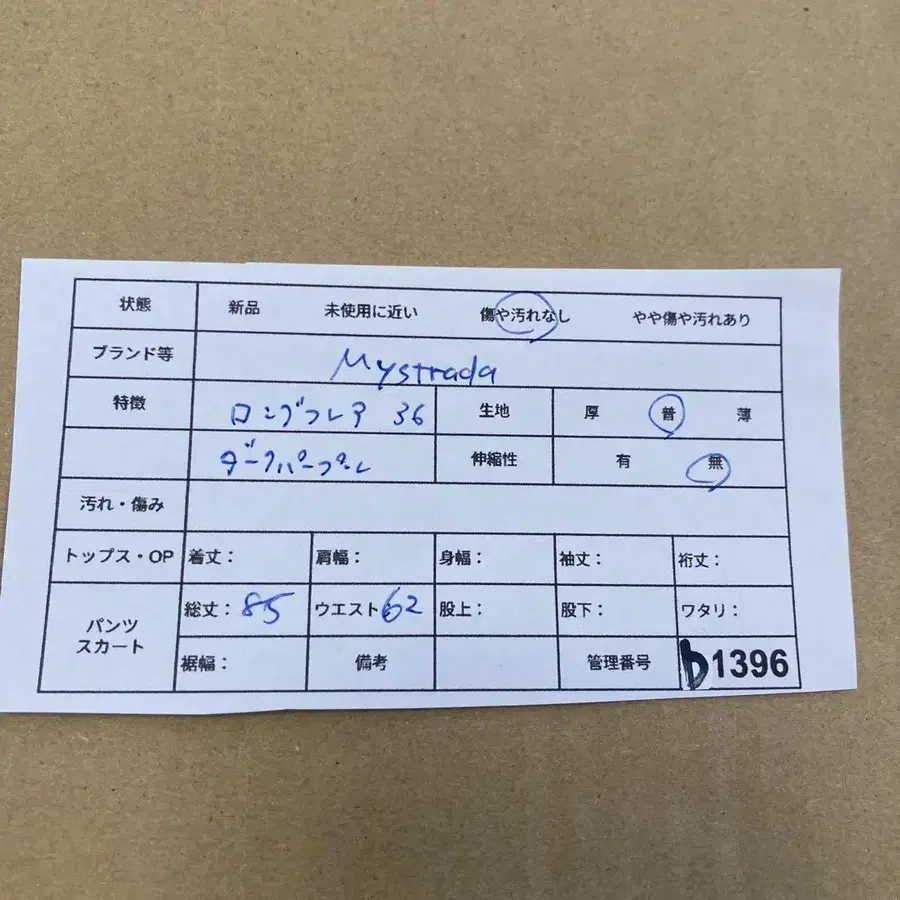 状態 新品 未使用に近い 傷や汚れなし やや傷や汚れあり
ブランド等 Mystrada
特徴 ロングフレア 36 生地 厚 普 薄
ダークパープル 伸縮性 有 無
汚れ・傷み
トップス・OP 着丈: 肩幅: 身幅: 袖丈: 裄丈:
パンツ スカート 総丈:85 ウエスト:62 股上: 股下: ワタリ:
裾幅: 備考 管理番号 b1396